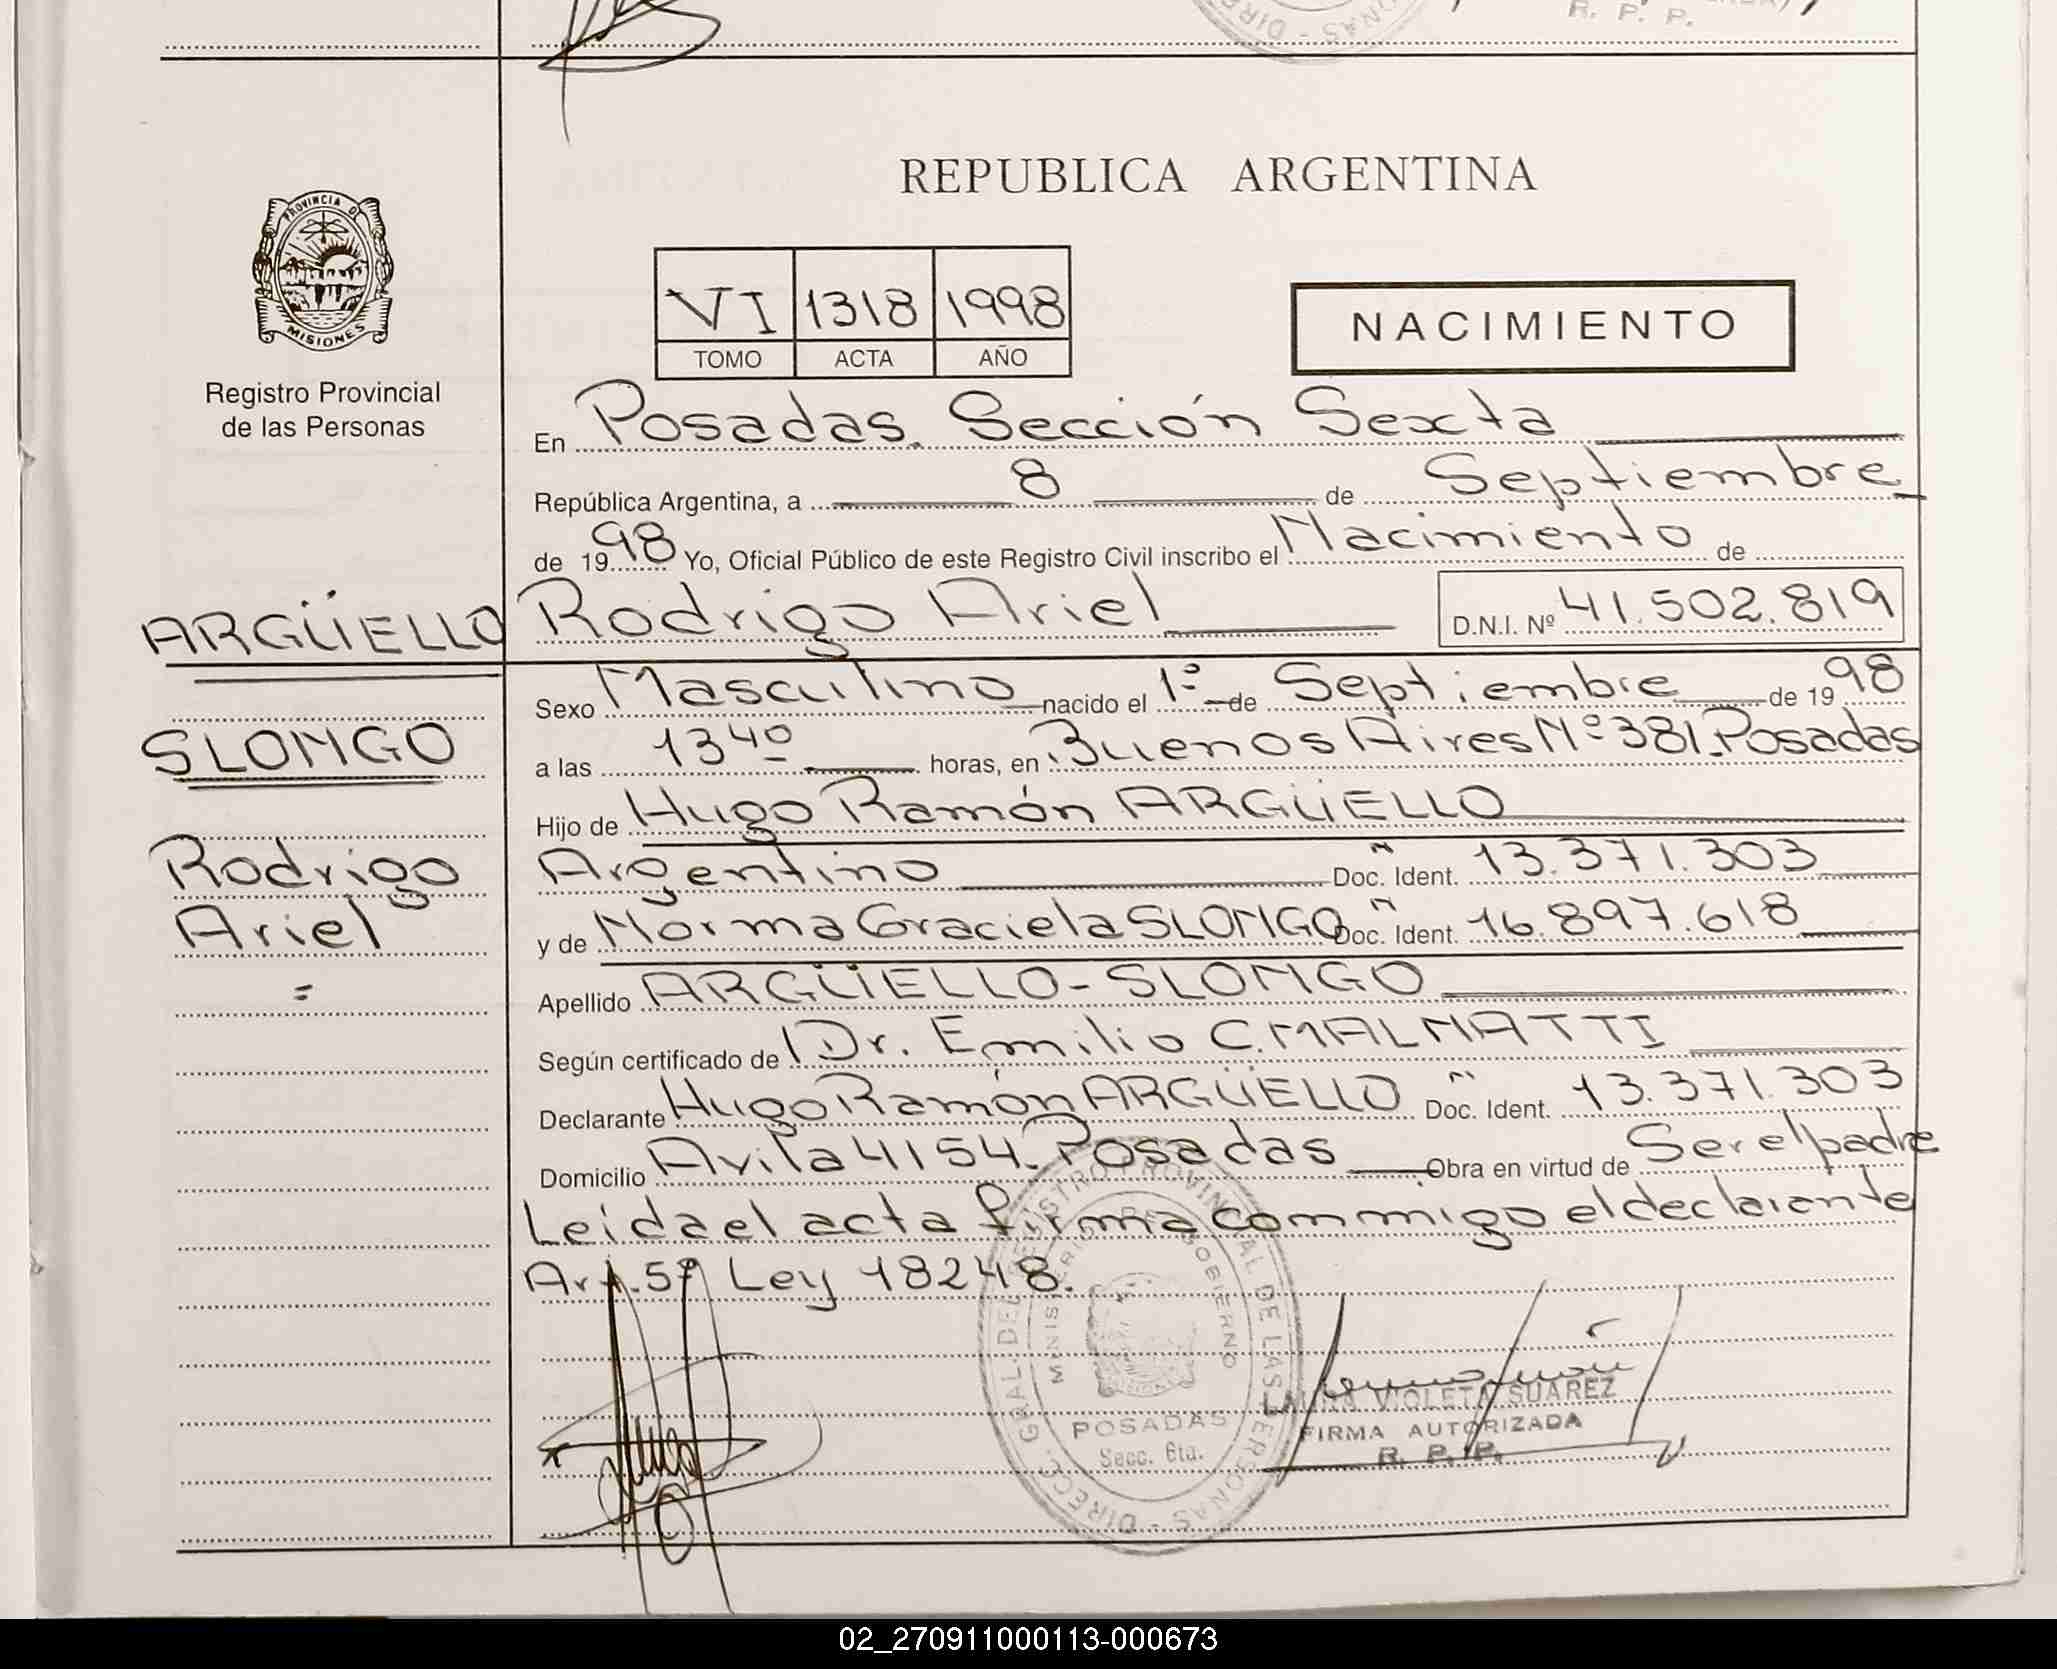 R. P. P.
REPUBLICA ARGENTINA
PROVINCIA DE
MISIONES
Registro Provincial
de las Personas
VI 1318 1998
TOMO ACTA AÑO
NACIMIENTO
En Posadas. Sección Sexta
República Argentina, a 8 de Septiembre
de 1998 Yo, Oficial Público de este Registro Civil inscribo el Nacimiento de
ARGÜELLO Rodrigo Ariel D.N.I. Nº 41.502.819
Sexo Masculino nacido el 1º de Septiembre de 1998
SLONGO
a las 13 40 horas, en Buenos Aires Nº 381. Posadas
Hijo de Hugo Ramón ARGÜELLO
Rodrigo
Argentino Doc. Ident. 13.371.303
Ariel
y de Norma Graciela SLONGO Doc. Ident. 16.897.618
Apellido ARGÜELLO - SLONGO
Según certificado de Dr. Emilio C. MALNATTI
Declarante Hugo Ramón ARGÜELLO Doc. Ident. 13.371.303
Domicilio Avila 4154. Posadas Obra en virtud de Ser el padre
Leida el acta firma conmigo el declarante
Art. 5º Ley 18248.
DIRECC. GRAL. DEL REGISTRO PROVINCIAL DE LAS PERSONAS
MINISTERIO DE GOBIERNO
POSADAS
Secc. 6ta.
VIOLETA SUAREZ
FIRMA AUTORIZADA
R. P. P.
02_270911000113-000673